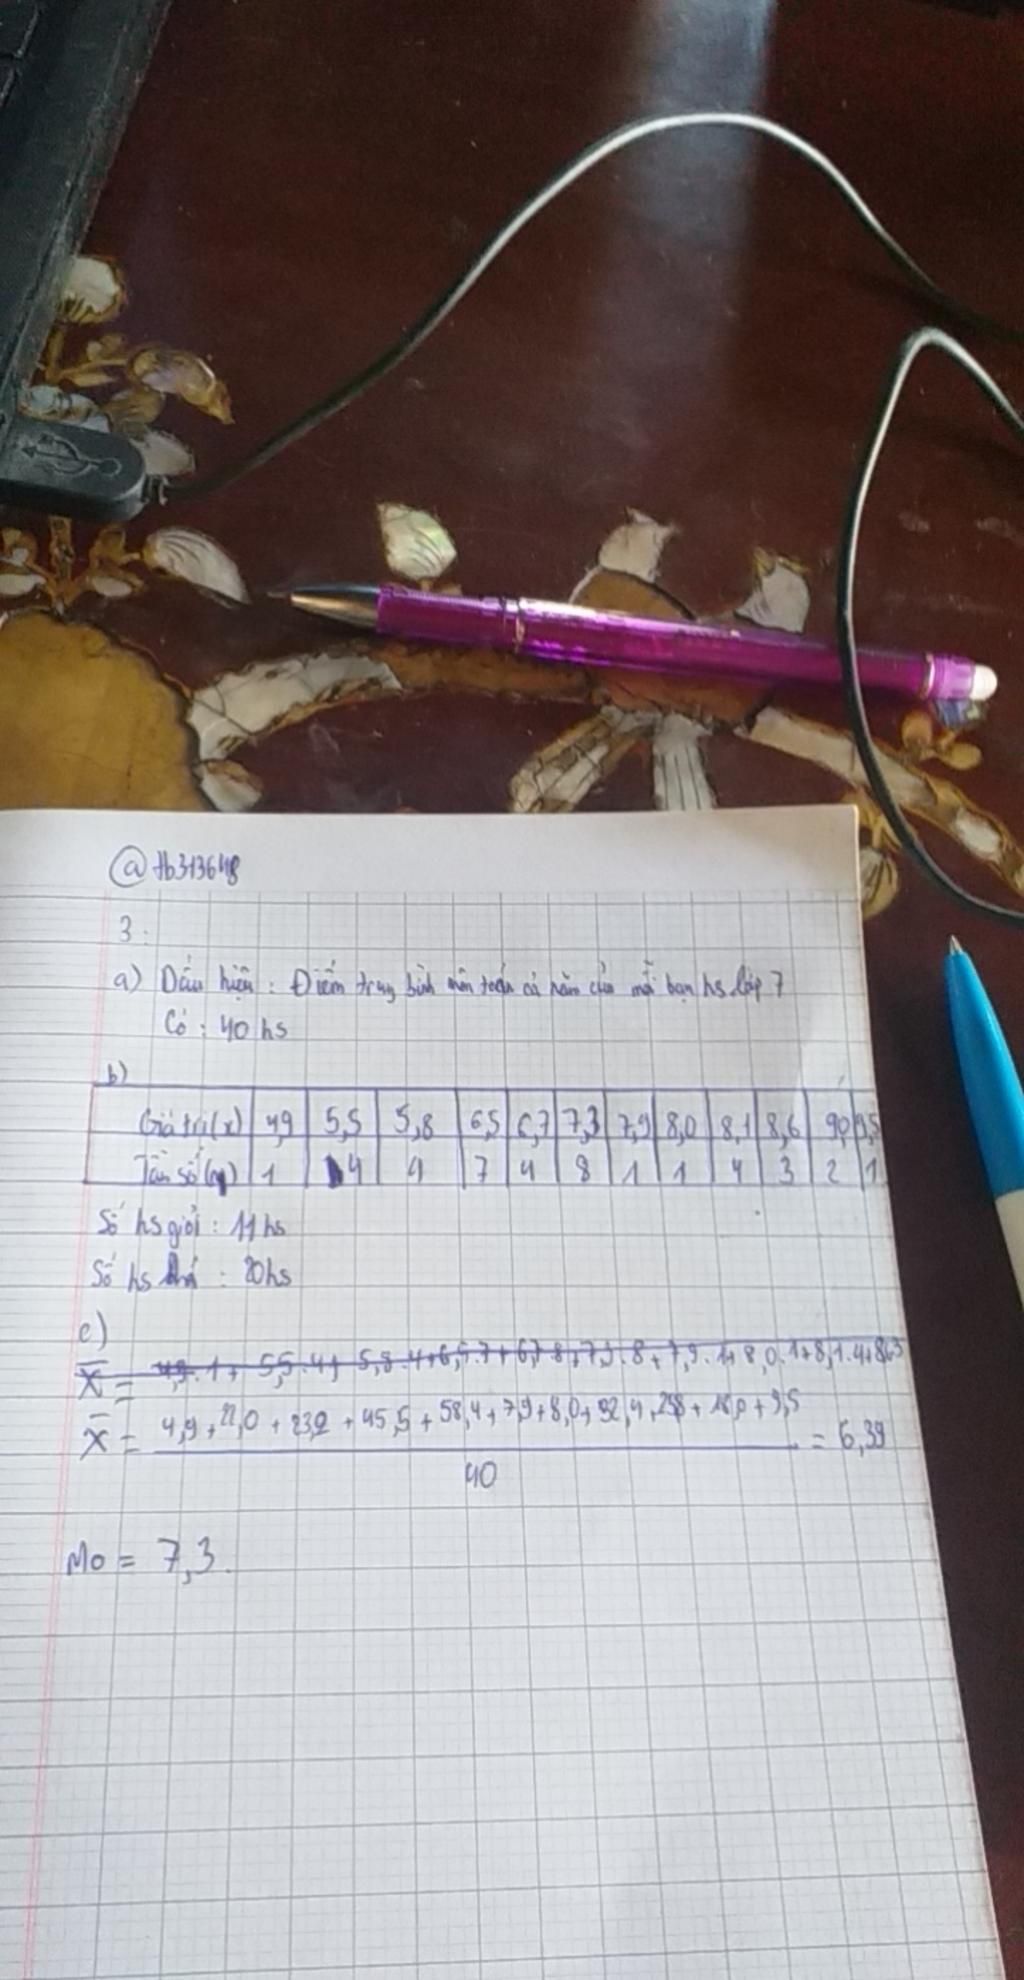 @tb313648
3:
a) Dấu hiệu : Điểm trung bình môn toán cả năm của mỗi bạn hs lớp 7
Có : 40 hs
b)
Giá trị (x) 4,9 5,5 5,8 6,5 6,7 7,3 7,9 8,0 8,1 8,6 9,0 9,5
Tần số (n) 1 4 4 7 4 8 1 1 4 3 2 1
Số hs giỏi : 11 hs
Số hs khá : 20 hs
c)
X̄ = 4,9 . 1 + 5,5 . 4 + 5,8 . 4 + 6,5 . 7 + 6,7 8 + 7,3 . 8 + 7,9 . 1 + 8,0 . 1 + 8,1 . 4 + 8,6.3
X̄ = 4,9 + 22,0 + 23,2 + 45,5 + 58,4 + 7,9 + 8,0 + 32,4 + 25,8 + 18,0 + 9,5 = 6,39
40
Mo = 7,3.